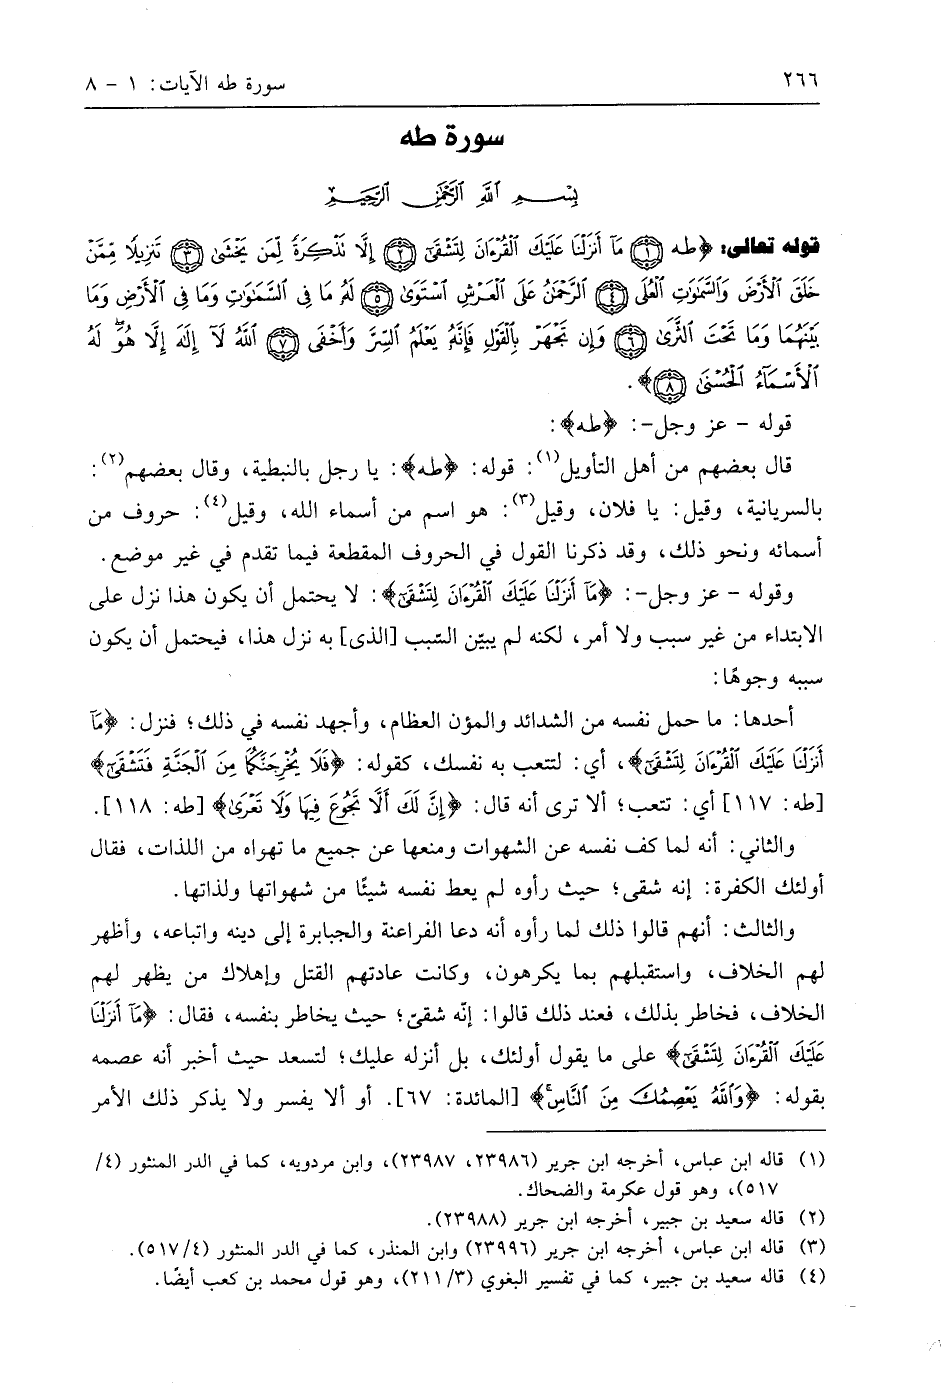 ٢٦٦ سورة طه الآيات: ١ - ٨
سورة طه
بِسْمِ ٱللَّهِ ٱلرَّحْمَٰنِ ٱلرَّحِيمِ
قوله تعالى: ﴿طه ١ مَآ أَنزَلْنَا عَلَيْكَ ٱلْقُرْءَانَ لِتَشْقَىٰٓ ٢ إِلَّا تَذْكِرَةً لِّمَن يَخْشَىٰ ٣ تَنزِيلًا مِّمَّنْ
خَلَقَ ٱلْأَرْضَ وَٱلسَّمَٰوَٰتِ ٱلْعُلَى ٤ ٱلرَّحْمَٰنُ عَلَى ٱلْعَرْشِ ٱسْتَوَىٰ ٥ لَهُۥ مَا فِى ٱلسَّمَٰوَٰتِ وَمَا فِى ٱلْأَرْضِ وَمَا
بَيْنَهُمَا وَمَا تَحْتَ ٱلثَّرَىٰ ٦ وَإِن تَجْهَرْ بِٱلْقَوْلِ فَإِنَّهُۥ يَعْلَمُ ٱلسِّرَّ وَأَخْفَى ٧ ٱللَّهُ لَآ إِلَٰهَ إِلَّا هُوَۖ لَهُ
ٱلْأَسْمَآءُ ٱلْحُسْنَىٰ ٨﴾.
قوله - عز وجل-: ﴿طه﴾:
قال بعضهم من أهل التأويل(١): قوله: ﴿طه﴾: يا رجل بالنبطية، وقال بعضهم(٢):
بالسريانية، وقيل: يا فلان، وقيل(٣): هو اسم من أسماء الله، وقيل(٤): حروف من
أسمائه ونحو ذلك، وقد ذكرنا القول في الحروف المقطعة فيما تقدم في غير موضع.
وقوله - عز وجل-: ﴿مَآ أَنزَلْنَا عَلَيْكَ ٱلْقُرْءَانَ لِتَشْقَىٰٓ﴾: لا يحتمل أن يكون هذا نزل على
الابتداء من غير سبب ولا أمر، لكنه لم يبيّن السّبب [الذى] به نزل هذا، فيحتمل أن يكون
سببه وجوهًا:
أحدها: ما حمل نفسه من الشدائد والمؤن العظام، وأجهد نفسه في ذلك؛ فنزل: ﴿مَآ
أَنزَلْنَا عَلَيْكَ ٱلْقُرْءَانَ لِتَشْقَىٰٓ﴾، أي: لتتعب به نفسك، كقوله: ﴿فَلَا يُخْرِجَنَّكُمَا مِنَ ٱلْجَنَّةِ فَتَشْقَىٰٓ﴾
[طه: ١١٧] أي: تتعب؛ ألا ترى أنه قال: ﴿إِنَّ لَكَ أَلَّا تَجُوعَ فِيهَا وَلَا تَعْرَىٰ﴾ [طه: ١١٨].
والثاني: أنه لما كف نفسه عن الشهوات ومنعها عن جميع ما تهواه من اللذات، فقال
أولئك الكفرة: إنه شقى؛ حيث رأوه لم يعط نفسه شيئًا من شهواتها ولذاتها.
والثالث: أنهم قالوا ذلك لما رأوه أنه دعا الفراعنة والجبابرة إلى دينه واتباعه، وأظهر
لهم الخلاف، واستقبلهم بما يكرهون، وكانت عادتهم القتل وإهلاك من يظهر لهم
الخلاف، فخاطر بذلك، فعند ذلك قالوا: إنّه شقىّ؛ حيث يخاطر بنفسه، فقال: ﴿مَآ أَنزَلْنَا
عَلَيْكَ ٱلْقُرْءَانَ لِتَشْقَىٰٓ﴾ على ما يقول أولئك، بل أنزله عليك؛ لتسعد حيث أخبر أنه عصمه
بقوله: ﴿وَٱللَّهُ يَعْصِمُكَ مِنَ ٱلنَّاسِۗ﴾ [المائدة: ٦٧]. أو ألا يفسر ولا يذكر ذلك الأمر
(١) قاله ابن عباس، أخرجه ابن جرير (٢٣٩٨٦، ٢٣٩٨٧)، وابن مردويه، كما في الدر المنثور (٤/
٥١٧)، وهو قول عكرمة والضحاك.
(٢) قاله سعيد بن جبير، أخرجه ابن جرير (٢٣٩٨٨).
(٣) قاله ابن عباس، أخرجه ابن جرير (٢٣٩٩٦) وابن المنذر، كما في الدر المنثور (٥١٧/٤).
(٤) قاله سعيد بن جبير، كما في تفسير البغوي (٢١١/٣)، وهو قول محمد بن كعب أيضًا.